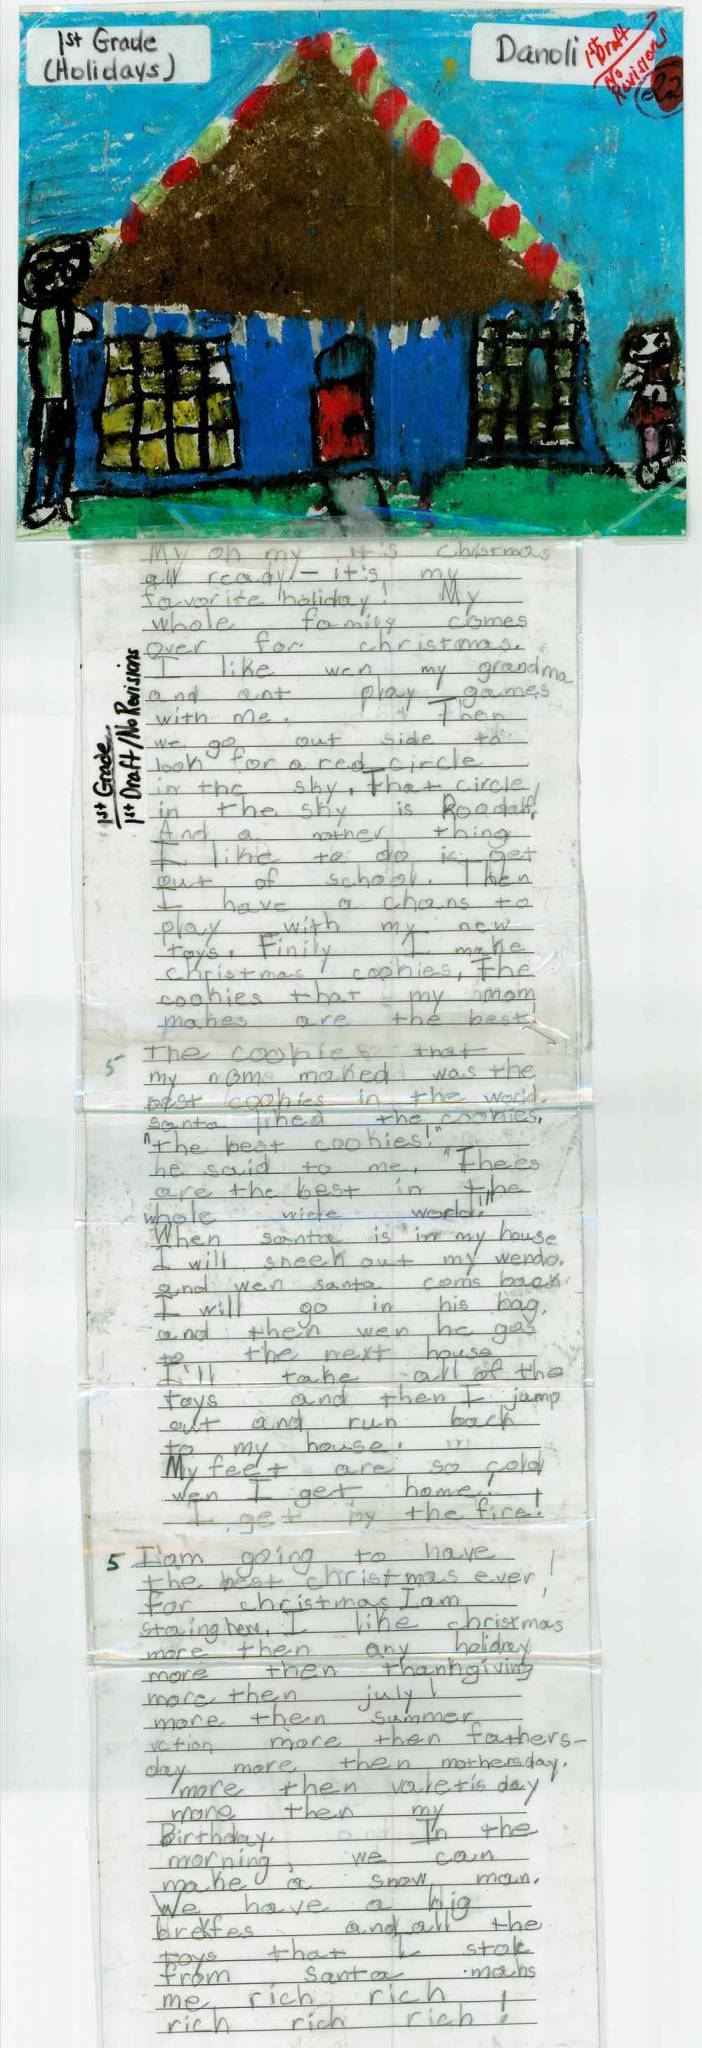 1st Grade
(Holidays)
Danoli
1st Draft
No
Revisions
22
1st Grade
1st Draft/No Revisions
My oh my it's christmas
all ready - it's my
favorite holiday! My
whole family comes
over for christmas.
I like wen my grandma
and ant play games
with me. Then
we go out side to
look for a red circle
in the sky. That circle
in the sky is Roodalf.
And a nother thing
I like to do is get
out of school. Then
I have a chans to
play with my new
toys. Finily I make
christmas cookies, The
cookies that my mom
makes are the best!
5 The cookies that
my moms maked was the
best cookies in the world.
santa liked the cookies.
"the best cookies!"
he said to me. "Thees
are the best in the
whole wide world!"
When santa is in my house
I will sneek out my wendo.
and wen santa coms back
I will go in his bag.
and then wen he gos
to the next house
I'll take all of the
toys and then I jump
out and run back
to my house.
My feet are so cold
wen I get home!
I get by the fire!
5 I'am going to have
the best christmas ever!
for christmas I am
staing here, I like christmas
more then any holiday
more then thankgiving
more then july!
more then summer
vction more then fathers-
day more then mothersday.
more then valetis day
more then my
Birthday. In the
morning, we can
make a snow man.
We have a big
brekfes and all the
toys that I stole
from santa maks
me rich rich!
rich rich rich!